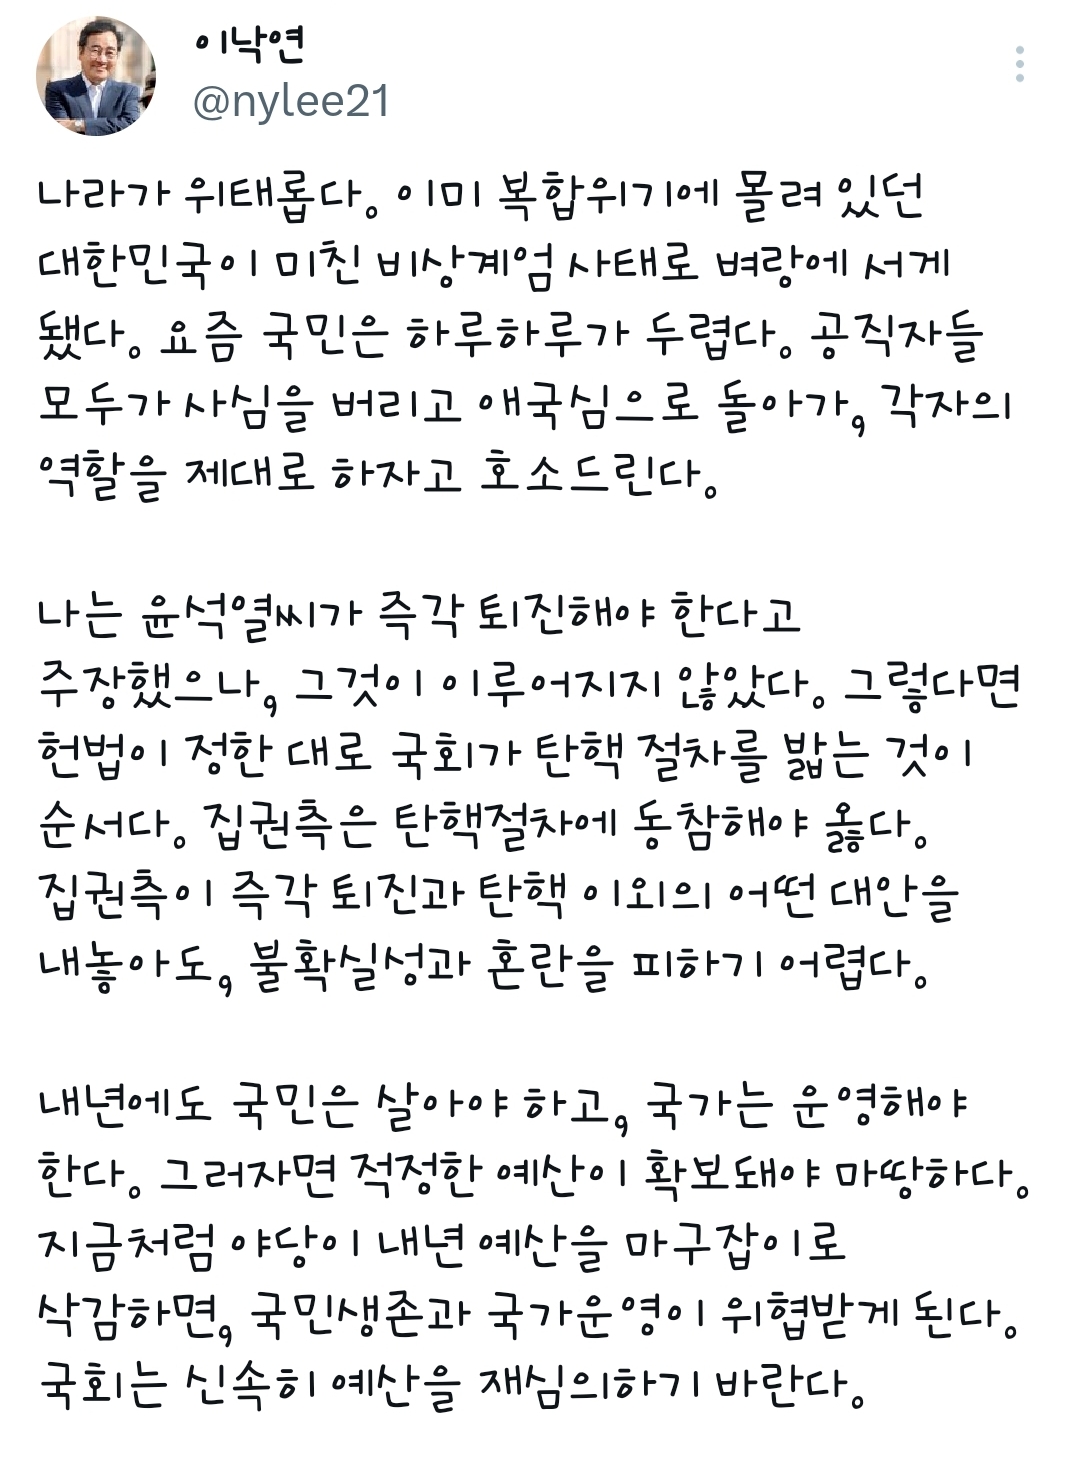 이낙연
@nylee21
나라가 위태롭다. 이미 복합위기에 몰려 있던
대한민국이 미친 비상계엄 사태로 벼랑에 서게
됐다. 요즘 국민은 하루하루가 두렵다. 공직자들
모두가 사심을 버리고 애국심으로 돌아가, 각자의
역할을 제대로 하자고 호소드린다.
나는 윤석열씨가 즉각 퇴진해야 한다고
주장했으나, 그것이 이루어지지 않았다. 그렇다면
헌법이 정한 대로 국회가 탄핵 절차를 밟는 것이
순서다. 집권측은 탄핵절차에 동참해야 옳다.
집권측이 즉각 퇴진과 탄핵 이외의 어떤 대안을
내놓아도, 불확실성과 혼란을 피하기 어렵다.
내년에도 국민은 살아야 하고, 국가는 운영해야
한다. 그러자면 적정한 예산이 확보돼야 마땅하다.
지금처럼 야당이 내년 예산을 마구잡이로
삭감하면, 국민생존과 국가운영이 위협받게 된다.
국회는 신속히 예산을 재심의하기 바란다.